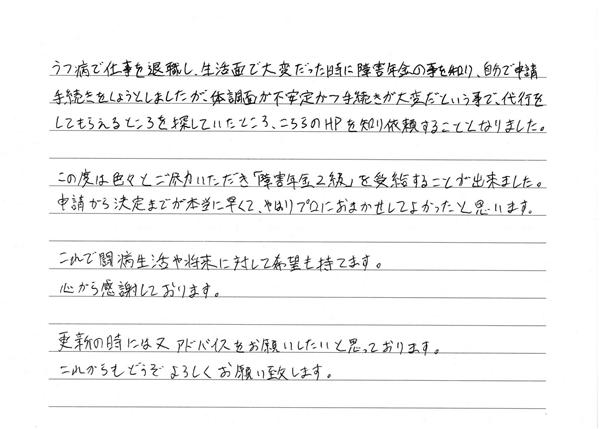 うつ病で仕事を退職し、生活面で大変だった時に障害年金の事を知り、自分で申請
手続きをしようとしましたが、体調面が不安定かつ手続きが大変だという事で、代行を
してもらえるところを探していたところ、こちらのHPを知り依頼することとなりました。
この度は色々とご尽力いただき「障害年金2級」を受給することが出来ました。
申請から決定までが本当に早くて、やはりプロにおまかせしてよかったと思います。
これで闘病生活や将来に対して希望も持てます。
心から感謝しております。
更新の時には又アドバイスをお願いしたいと思っております。
これからもどうぞよろしくお願い致します。